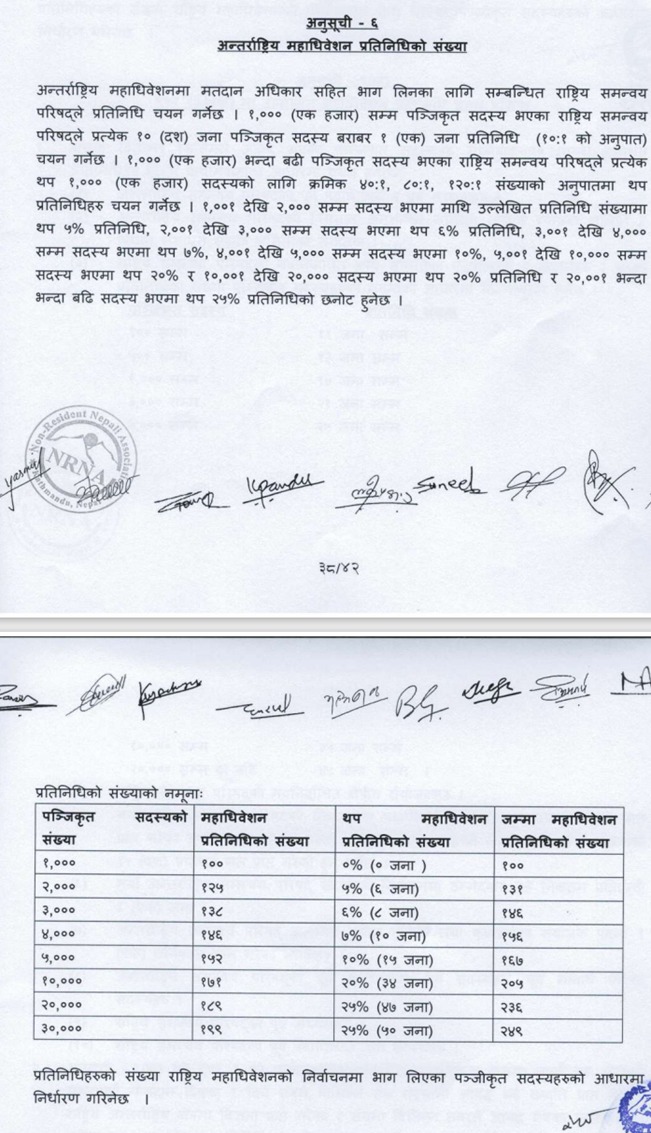 अनुसूची - ६
अन्तर्राष्ट्रिय महाधिवेशन प्रतिनिधिको संख्या
अन्तर्राष्ट्रिय महाधिवेशनमा मतदान अधिकार सहित भाग लिनका लागि सम्बन्धित राष्ट्रिय समन्वय
परिषद्ले प्रतिनिधि चयन गर्नेछ । १,००० (एक हजार) सम्म पञ्जिकृत सदस्य भएका राष्ट्रिय समन्वय
परिषद्ले प्रत्येक १० (दश) जना पञ्जिकृत सदस्य बराबर १ (एक) जना प्रतिनिधि (१०:१ को अनुपात)
चयन गर्नेछ । १,००० (एक हजार) भन्दा बढी पञ्जिकृत सदस्य भएका राष्ट्रिय समन्वय परिषद्ले प्रत्येक
थप १,००० (एक हजार) सदस्यको लागि क्रमिक ४०:१, ८०:१, १२०:१ संख्याको अनुपातमा थप
प्रतिनिधिहरु चयन गर्नेछ । १,००१ देखि २,००० सम्म सदस्य भएमा माथि उल्लेखित प्रतिनिधि संख्यामा
थप ५% प्रतिनिधि, २,००१ देखि ३,००० सम्म सदस्य भएमा थप ६% प्रतिनिधि, ३,००१ देखी ४,०००
सम्म सदस्य भएमा थप ७%, ४,००१ देखि ५,००० सम्म सदस्य भएमा १०%, ५,००१ देखि १०,००० सम्म
सदस्य भएमा थप २०% र १०,००१ देखि २०,००० सदस्य भएमा थप २०% प्रतिनिधि र २०,००१ भन्दा
भन्दा बढि सदस्य भएमा थप २५% प्रतिनिधिको छनोट हुनेछ ।
Non-Resident Nepali Association
NRNA
Kathmandu, Nepal
३८/४२
प्रतिनिधिको संख्याको नमूनाः
पञ्जिकृत सदस्यको संख्या | महाधिवेशन प्रतिनिधिको संख्या | थप महाधिवेशन प्रतिनिधिको संख्या | जम्मा महाधिवेशन प्रतिनिधिको संख्या
१,००० | १०० | ०% (० जना ) | १००
२,००० | १२५ | ५% (६ जना) | १३१
३,००० | १३८ | ६% (८ जना) | १४६
४,००० | १४६ | ७% (१० जना) | १५६
५,००० | १५२ | १०% (१५ जना) | १६७
१०,००० | १७१ | २०% (३४ जना) | २०५
२०,००० | १८९ | २५% (४७ जना) | २३६
३०,००० | १९९ | २५% (५० जना) | २४९
प्रतिनिधिहरुको संख्या राष्ट्रिय महाधिवेशनको निर्वाचनमा भाग लिएका पञ्जीकृत सदस्यहरुको आधारमा
निर्धारण गरिनेछ ।